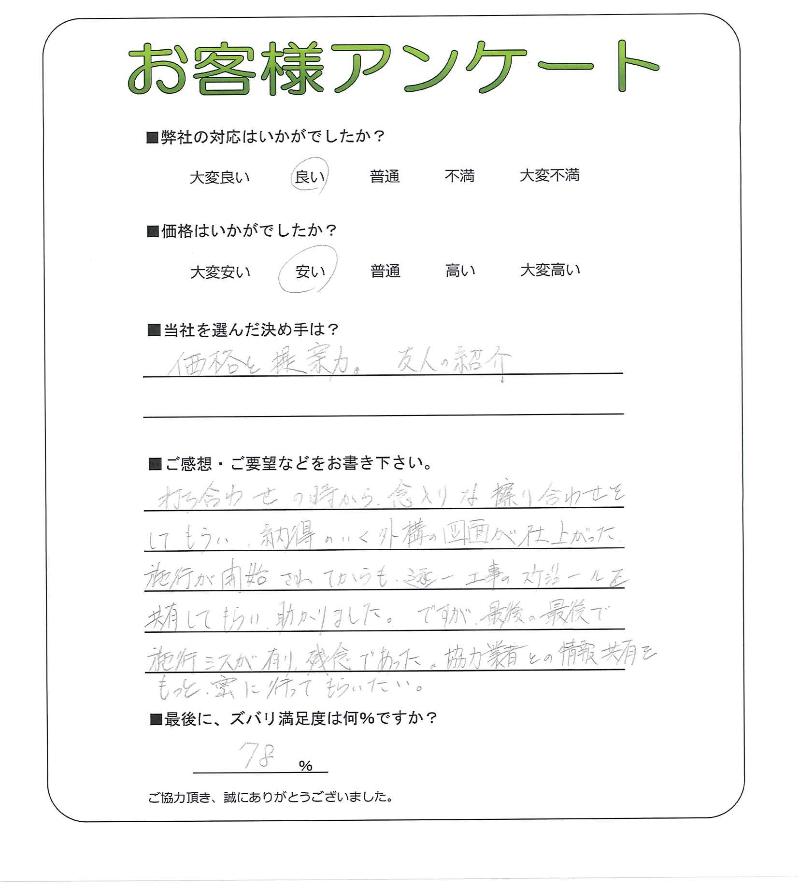 お客様アンケート
■弊社の対応はいかがでしたか？
大変良い 良い 普通 不満 大変不満
■価格はいかがでしたか？
大変安い 安い 普通 高い 大変高い
■当社を選んだ決め手は？
価格と提案力。 友人の紹介
■ご感想・ご要望などをお書き下さい。
打ち合わせの時から、念入りな擦り合わせを
してもらい、納得のいく外構の図面が仕上がった。
施行が開始されてからも、逐一工事のスケジュールを
共有してもらい、助かりました。ですが、最後の最後で
施行ミスが有り、残念であった。協力業者との情報共有を
もっと、密に行ってもらいたい。
■最後に、ズバリ満足度は何%ですか？
78 %
ご協力頂き、誠にありがとうございました。